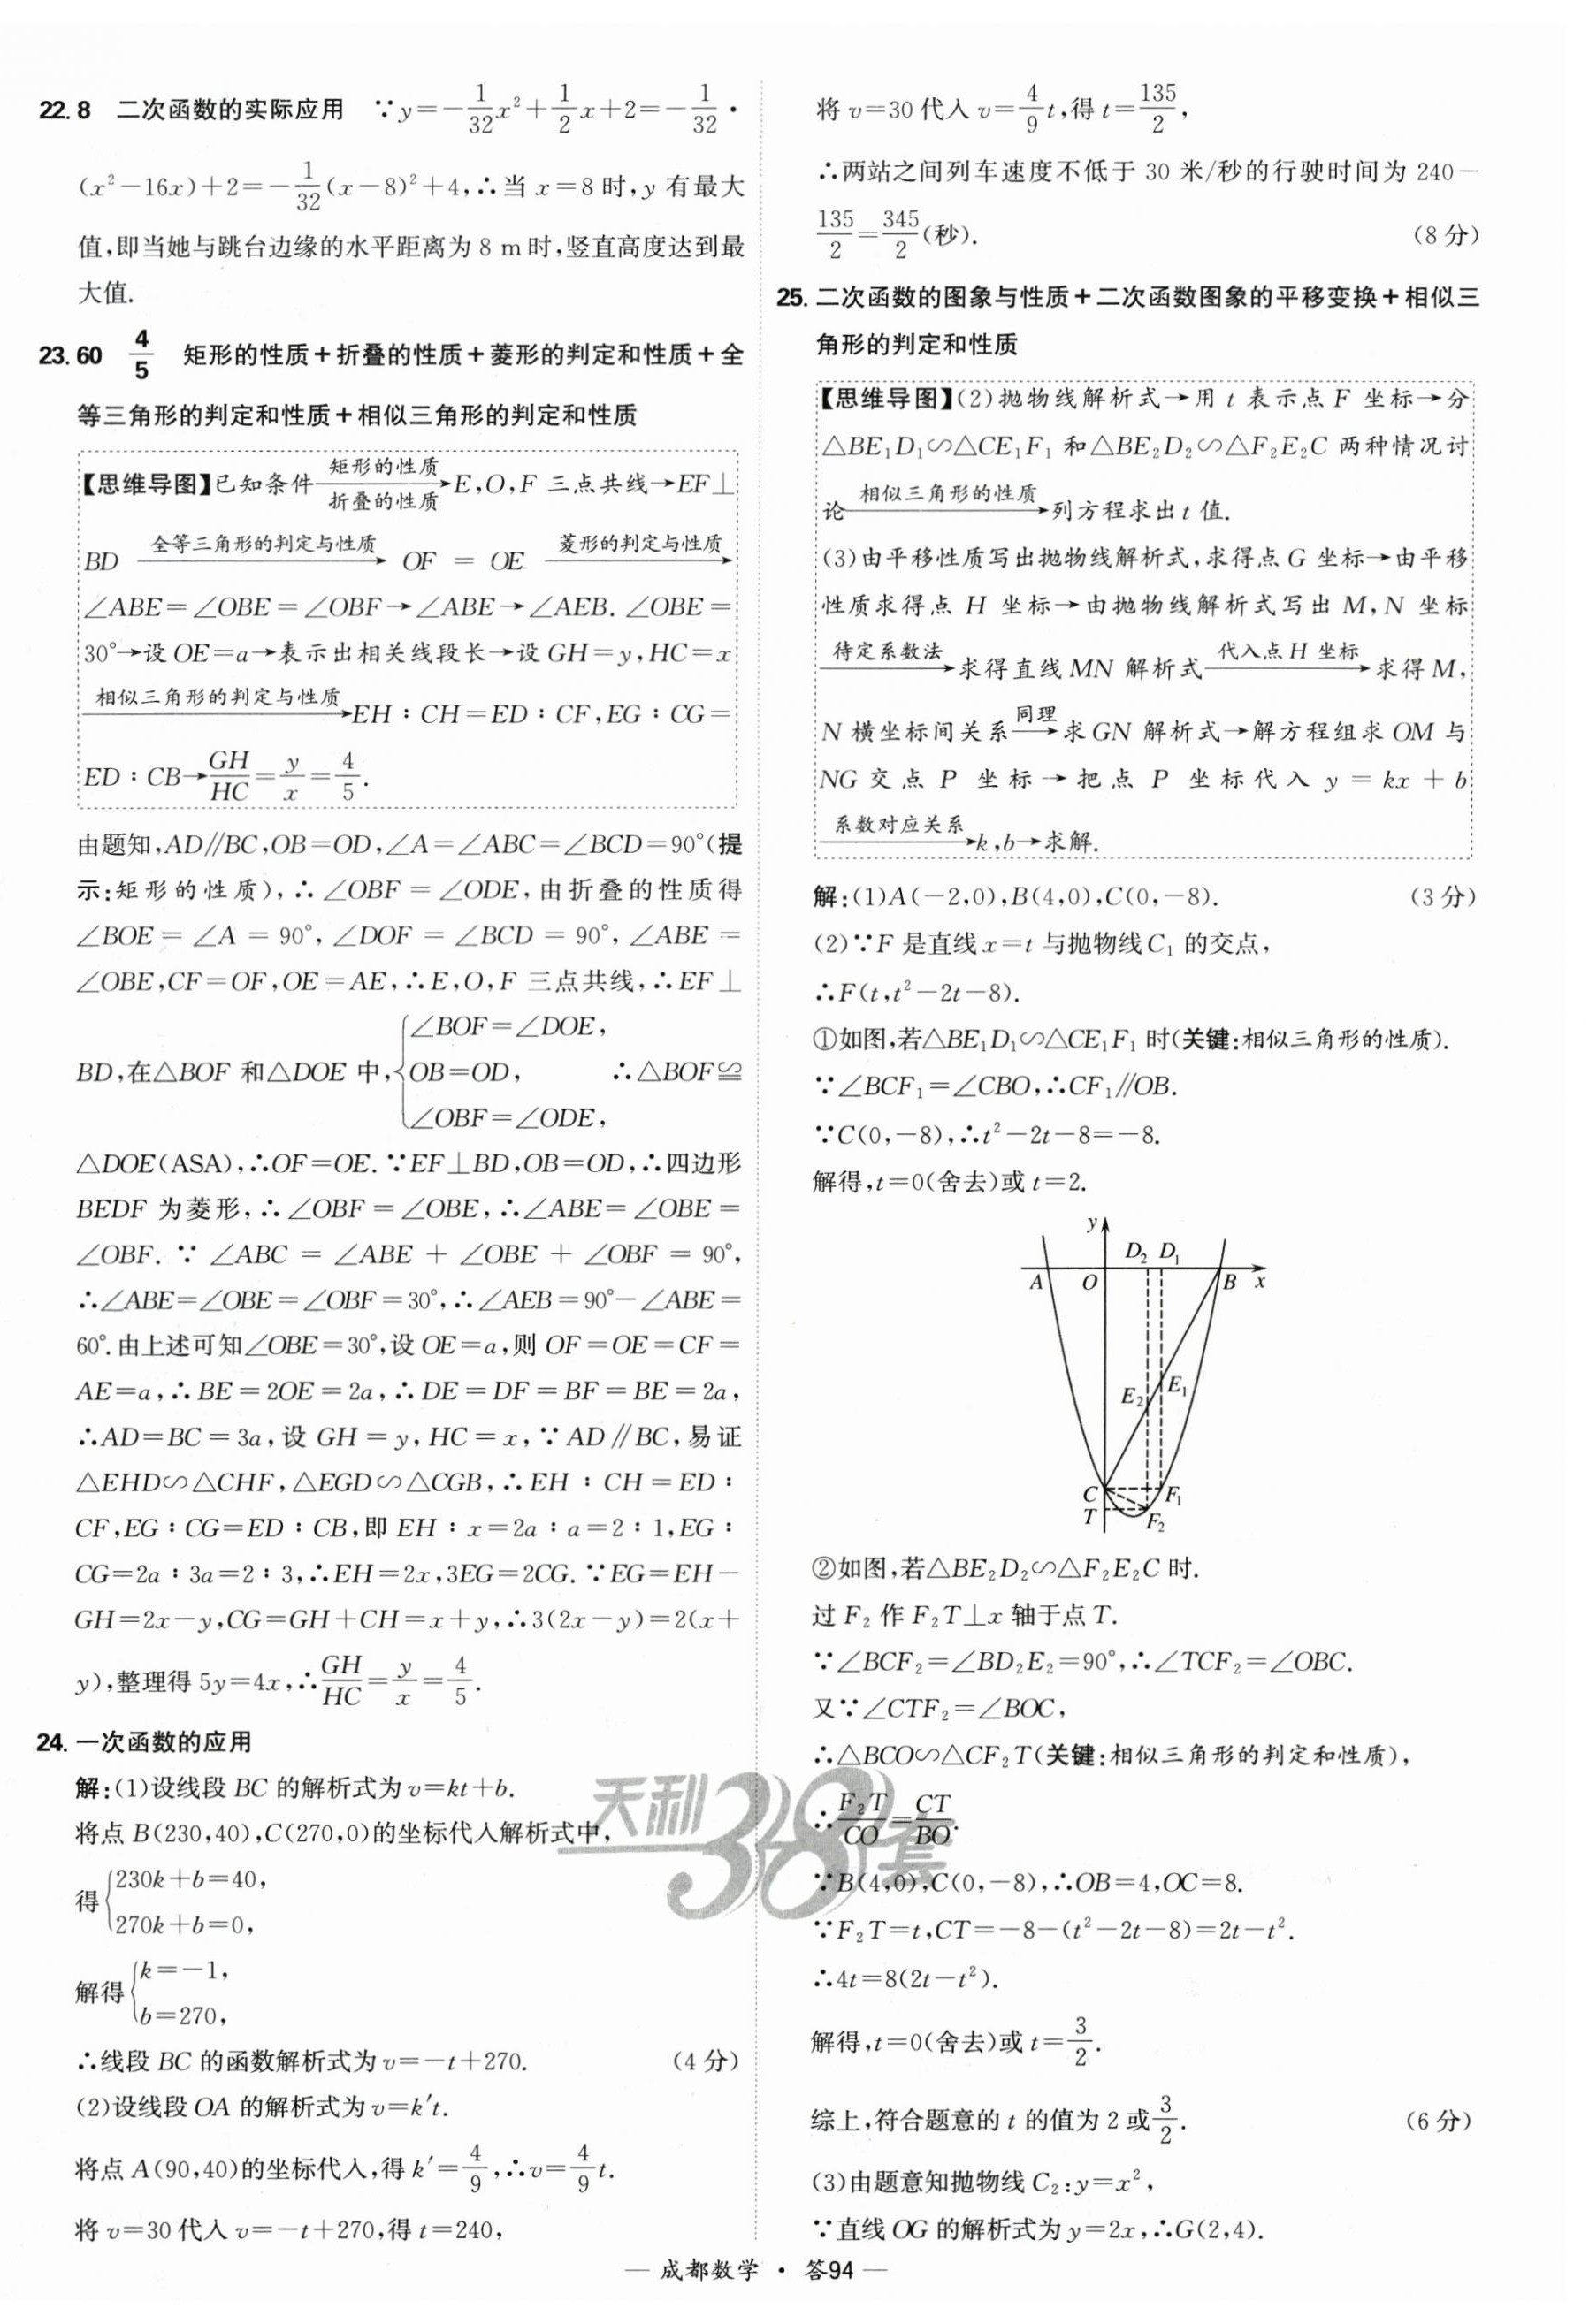 22. 8 二次函数的实际应用 ∵y=-1/32x²+1/2x+2=-1/32·
(x²-16x)+2=-1/32(x-8)²+4,∴当 x=8 时,y 有最大
值,即当她与跳台边缘的水平距离为 8 m 时,竖直高度达到最
大值.
23. 60 4/5 矩形的性质+折叠的性质+菱形的判定和性质+全
等三角形的判定和性质+相似三角形的判定和性质
【思维导图】已知条件 矩形的性质/折叠的性质→E,O,F 三点共线→EF⊥
BD 全等三角形的判定与性质→ OF = OE 菱形的判定与性质→
∠ABE=∠OBE=∠OBF→∠ABE→∠AEB. ∠OBE=
30°→设 OE=a→表示出相关线段长→设 GH=y,HC=x
相似三角形的判定与性质→EH∶CH=ED∶CF,EG∶CG=
ED∶CB→GH/HC=y/x=4/5.
由题知,AD∥BC,OB=OD,∠A=∠ABC=∠BCD=90°(提
示:矩形的性质),∴∠OBF=∠ODE,由折叠的性质得
∠BOE=∠A=90°,∠DOF=∠BCD=90°,∠ABE=
∠OBE,CF=OF,OE=AE,∴E,O,F 三点共线,∴EF⊥
BD,在△BOF 和△DOE 中,{∠BOF=∠DOE, OB=OD, ∠OBF=∠ODE, ∴△BOF≌
△DOE(ASA),∴OF=OE.∵EF⊥BD,OB=OD,∴四边形
BEDF 为菱形,∴∠OBF=∠OBE,∴∠ABE=∠OBE=
∠OBF. ∵∠ABC=∠ABE+∠OBE+∠OBF=90°,
∴∠ABE=∠OBE=∠OBF=30°,∴∠AEB=90°-∠ABE=
60°.由上述可知∠OBE=30°,设 OE=a,则 OF=OE=CF=
AE=a,∴BE=2OE=2a,∴DE=DF=BF=BE=2a,
∴AD=BC=3a,设 GH=y,HC=x,∵AD∥BC,易证
△EHD∽△CHF,△EGD∽△CGB,∴EH∶CH=ED∶
CF,EG∶CG=ED∶CB,即 EH∶x=2a∶a=2∶1,EG∶
CG=2a∶3a=2∶3,∴EH=2x,3EG=2CG.∵EG=EH-
GH=2x-y,CG=GH+CH=x+y,∴3(2x-y)=2(x+
y),整理得 5y=4x,∴GH/HC=y/x=4/5.
24. 一次函数的应用
解:(1)设线段 BC 的解析式为 v=kt+b.
将点 B(230,40),C(270,0)的坐标代入解析式中,
得{230k+b=40, 270k+b=0,
解得{k=-1, b=270,
∴线段 BC 的函数解析式为 v=-t+270. (4 分)
(2)设线段 OA 的解析式为 v=k′t.
将点 A(90,40)的坐标代入,得 k′=4/9,∴v=4/9t.
将 v=30 代入 v=-t+270,得 t=240,
将 v=30 代入 v=4/9t,得 t=135/2,
∴两站之间列车速度不低于 30 米/秒的行驶时间为 240-
135/2=345/2(秒). (8 分)
25. 二次函数的图象与性质+二次函数图象的平移变换+相似三
角形的判定和性质
【思维导图】(2)抛物线解析式→用 t 表示点 F 坐标→分
△BE₁D₁∽△CE₁F₁ 和△BE₂D₂∽△F₂E₂C 两种情况讨
论 相似三角形的性质→列方程求出 t 值.
(3)由平移性质写出抛物线解析式,求得点 G 坐标→由平移
性质求得点 H 坐标→由抛物线解析式写出 M,N 坐标
待定系数法→求得直线 MN 解析式 代入点 H 坐标→求得 M,
N 横坐标间关系 同理→求 GN 解析式→解方程组求 OM 与
NG 交点 P 坐标→把点 P 坐标代入 y=kx+b
系数对应关系→k,b→求解.
解:(1)A(-2,0),B(4,0),C(0,-8). (3 分)
(2)∵F 是直线 x=t 与抛物线 C₁ 的交点,
∴F(t,t²-2t-8).
①如图,若△BE₁D₁∽△CE₁F₁ 时(关键:相似三角形的性质).
∵∠BCF₁=∠CBO,∴CF₁∥OB.
∵C(0,-8),∴t²-2t-8=-8.
解得,t=0(舍去)或 t=2.
y
D₂ D₁
A O B x
E₂ E₁
C F₁
T F₂
②如图,若△BE₂D₂∽△F₂E₂C 时.
过 F₂ 作 F₂T⊥x 轴于点 T.
∵∠BCF₂=∠BD₂E₂=90°,∴∠TCF₂=∠OBC.
又∵∠CTF₂=∠BOC,
∴△BCO∽△CF₂T(关键:相似三角形的判定和性质),
∴F₂T/CO=CT/BO.
∵B(4,0),C(0,-8),∴OB=4,OC=8.
∵F₂T=t,CT=-8-(t²-2t-8)=2t-t².
∴4t=8(2t-t²).
解得,t=0(舍去)或 t=3/2.
综上,符合题意的 t 的值为 2 或 3/2. (6 分)
(3)由题意知抛物线 C₂:y=x²,
∵直线 OG 的解析式为 y=2x,∴G(2,4).
天利38套
— 成都数学 · 答94 —